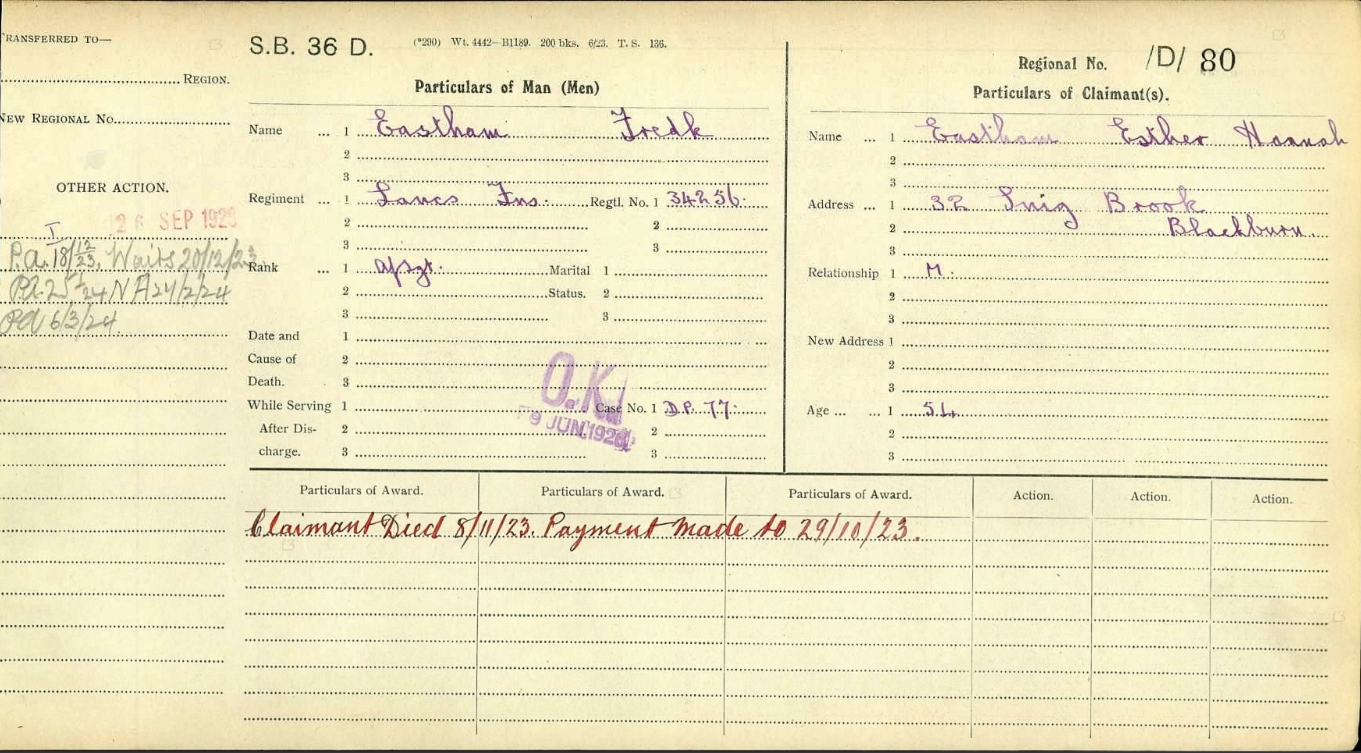 TRANSFERRED TO—
REGION.
NEW REGIONAL No.
OTHER ACTION.
26 SEP 1923
I
P.A. 18/12/23. Waits 20/12/23
PA 25/1/24 N A 27/2/24
PA 6/3/24
S.B. 36 D. (*290) Wt. 4442—B1189. 200 bks. 6/23. T. S. 136.
Particulars of Man (Men)
Name ... 1 Eastham Fredk
2
3
Regiment ... 1 Lancs Fus. Regtl. No. 1 34256.
2 2
3 3
Rank ... 1 Marital 1
2 Status. 2
3 3
Date and 1
Cause of 2
Death. 3
While Serving 1 Case No. 1 D.P. 77.
After Dis- 2 2
charge. 3 3
O.K.
9 JUN 192
Regional No. /D/ 80
Particulars of Claimant(s).
Name ... 1 Eastham Esther Hannah
2
3
Address ... 1 32 Snig Brook
2 Blackburn.
3
Relationship 1 M.
2
3
New Address 1
2
3
Age ... ... 1 54
2
3
Particulars of Award. Particulars of Award. Particulars of Award. Action. Action. Action.
Claimant Died 8/11/23. Payment made to 29/10/23.